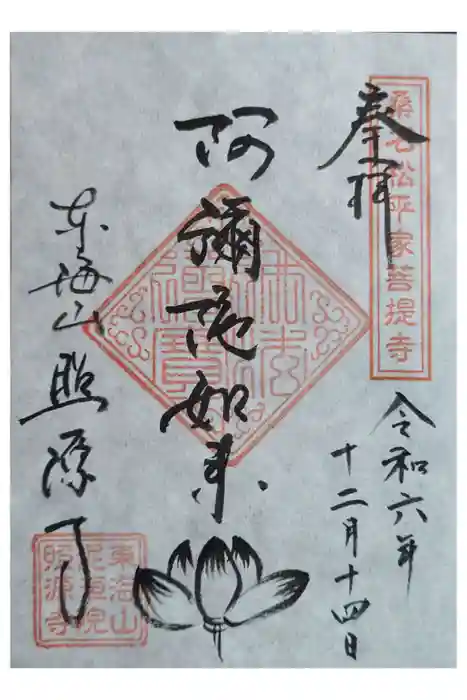 桑名松平家菩提寺
奉拝
令和六年
十二月十四日
阿彌陀如来
佛法僧寶
東海山 照源寺
東海山
泥洹院
照源寺